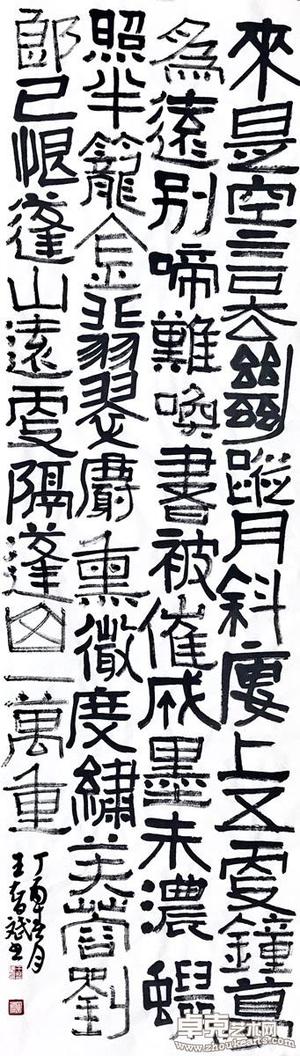 來是空言去絕蹤月斜樓上五更鐘夢
為遠别啼難喚書被催成墨未濃蠟
照半籠金翡翠麝熏微度繡芙蓉劉
郎已恨蓬山遠更隔蓬山一萬重
丁酉
月
王智斌书
卓克艺术网
www.zhuokearts.com